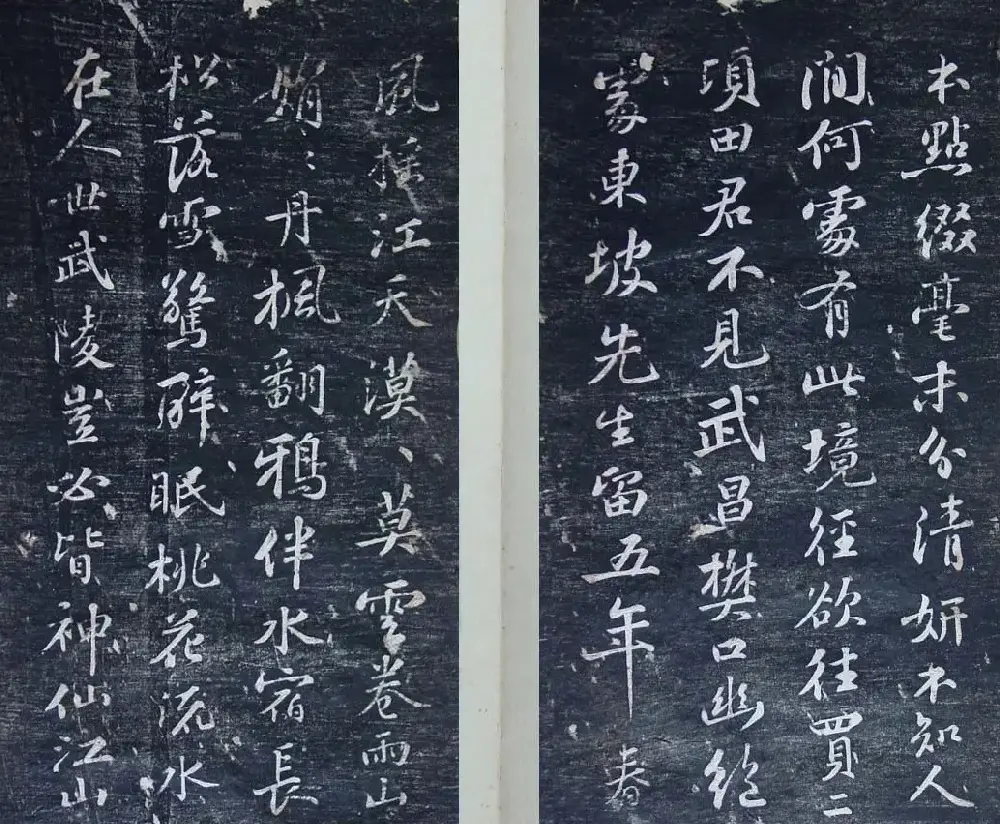 本點綴毫末分清妍不知人
間何處有此境徑欲往買二
頃田君不見武昌樊口幽絕
處東坡先生留五年春
風搖江天漠〻莫雲卷雨山
娟〻丹楓翻鴉伴水宿長
松落雪驚醉眠桃花流水
在人世武陵豈必皆神仙江山